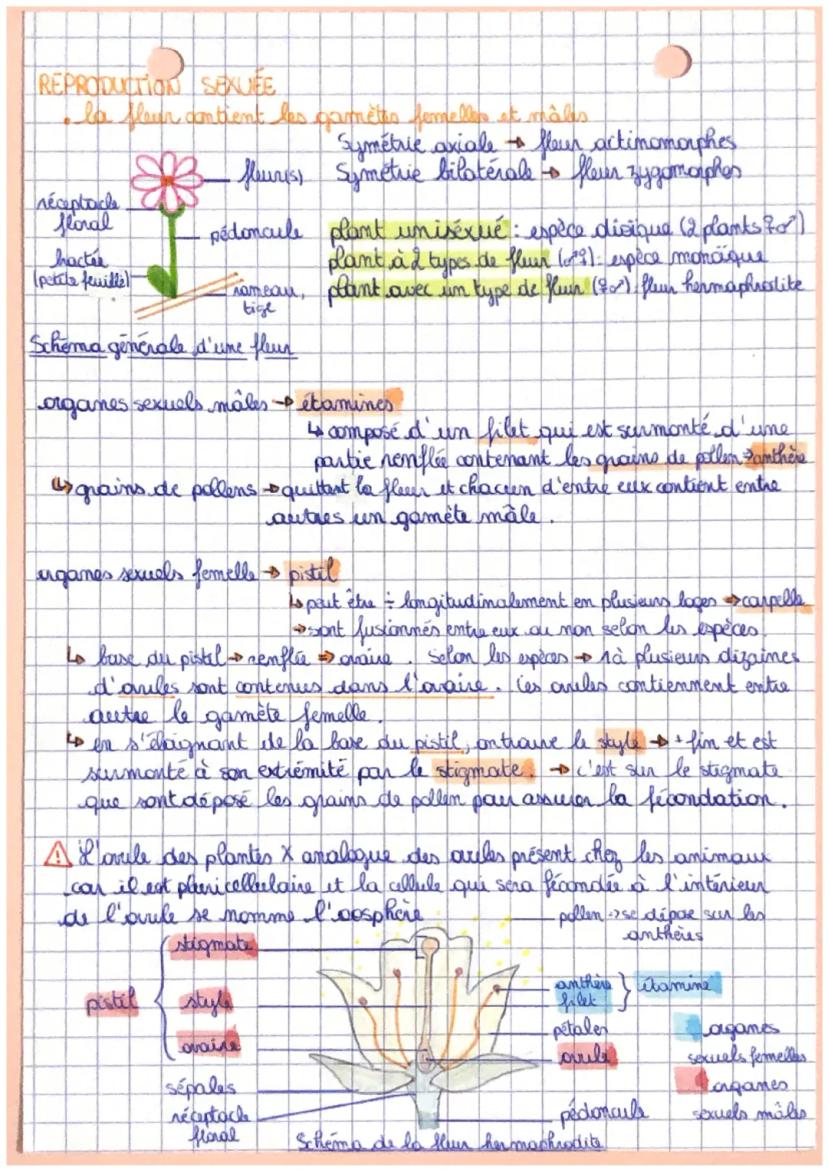 REPRODUCTION SEXUÉE
. la fleur contient les gamètes femelles et mâles
Symétrie axiale → fleur actinomorphes
fleur(s) Symétrie bilatérale → fleur zygomorphes
réceptacle floral
pédoncule
plant unisexué : espèce dioïque (2 plants ♀♂)
plant à 2 types de fleur (♂♀): espèce monoïque
bractée (petite feuille)
plant avec un type de fleur (♀♂): fleur hermaphrodite
rameau, tige
Schéma générale d'une fleur
organes sexuels mâles → étamines
↳ composé d'un filet qui est surmonté d'une
partie renflée contenant les grains de pollen ⇒ anthère
↳ grains de pollens → quittant la fleur et chacun d'entre eux contient entre
autres un gamète mâle.
organes sexuels femelle → pistil
↳ peut être ÷ longitudinalement en plusieurs loges ⇒ carpelle
→ sont fusionnés entre eux ou non selon les espèces.
↳ base du pistil → renflée ⇒ ovaire. Selon les espèces → 1 à plusieurs dizaines
d'ovules sont contenus dans l'ovaire. Ces ovules contiennent entre
autre le gamète femelle.
↳ en s'éloignant de la base du pistil, on trouve le style → + fin et est
surmonté à son extrémité par le stigmate. → c'est sur le stigmate
que sont déposé les grains de pollen pour assurer la fécondation.
⚠ L'ovule des plantes X analogue des ovules présent chez les animaux
car il est pluricellulaire et la cellule qui sera fécondée à l'intérieur
de l'ovule se nomme l'oosphère
pollen → se dépose sur les
anthères
stigmate
pistil { style
ovaire
anthère
filet } étamine
pétales
ovule
organes
sexuels femelles
organes
sexuels mâles
sépales
réceptacle
floral
pédoncule
Schéma de la fleur hermaphrodite